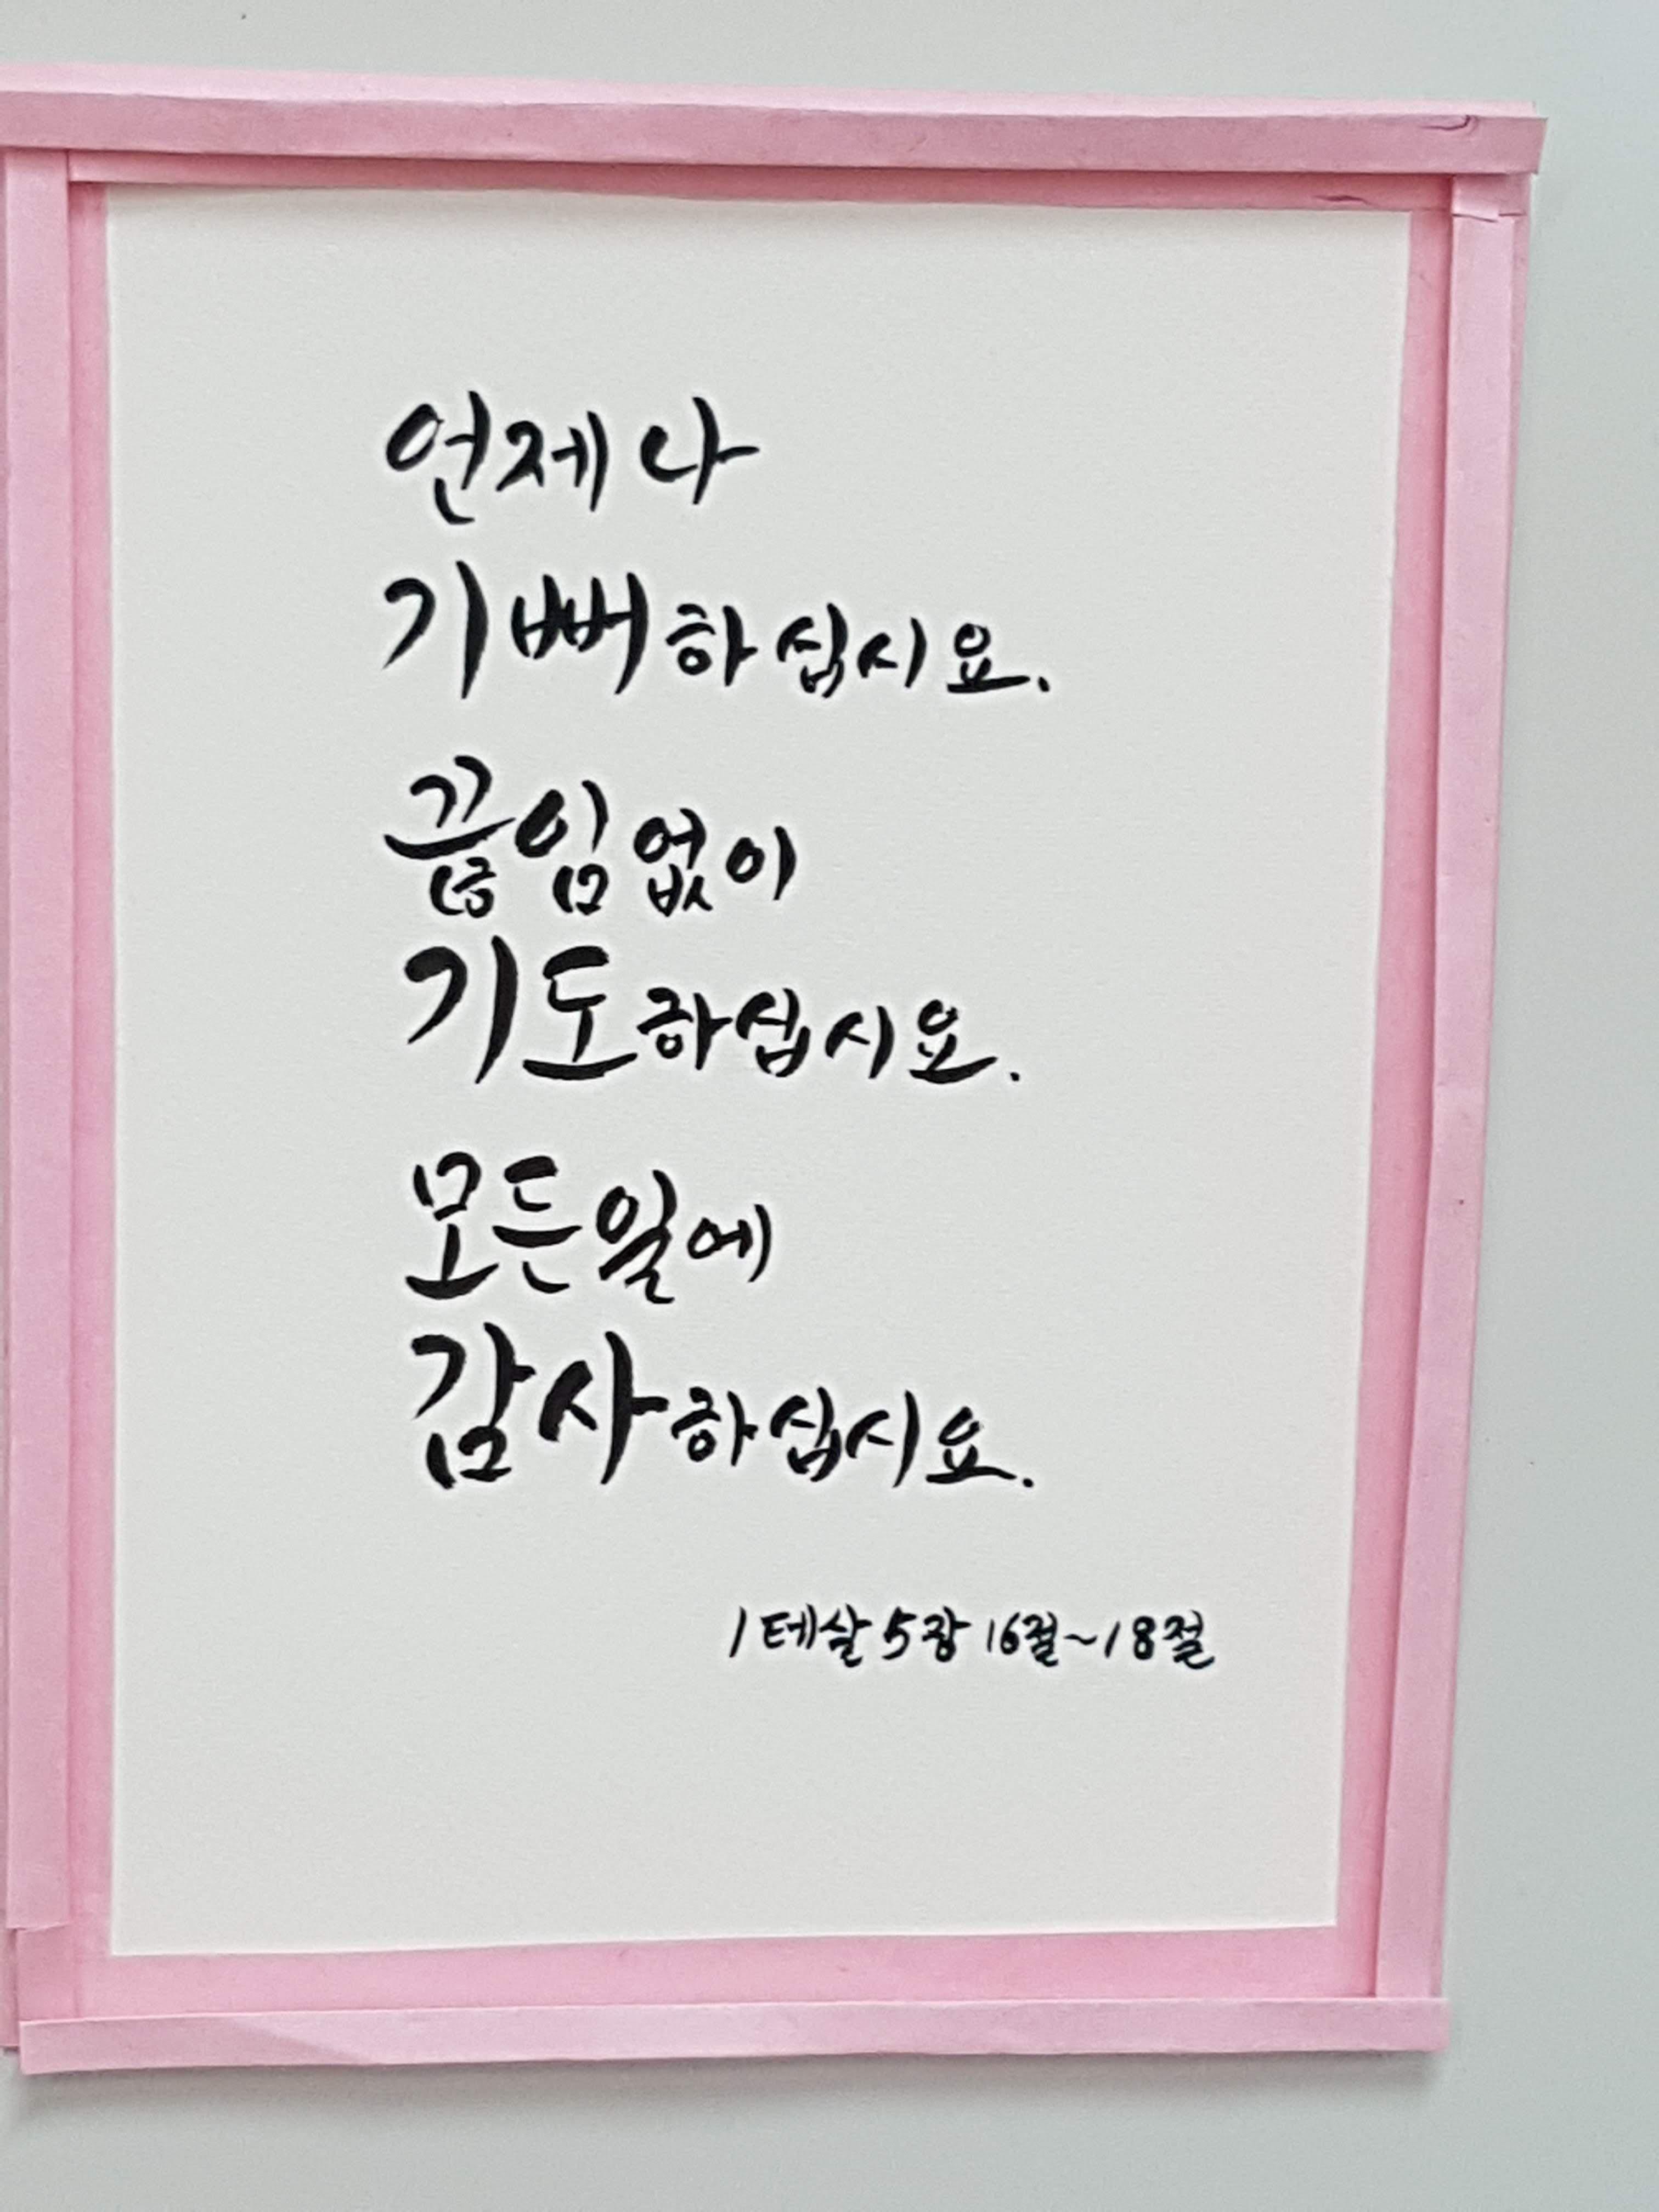 언제나
기뻐하십시요.
끊임없이
기도하십시요.
모든일에
감사하십시요.
1 테살 5장 16절~18절